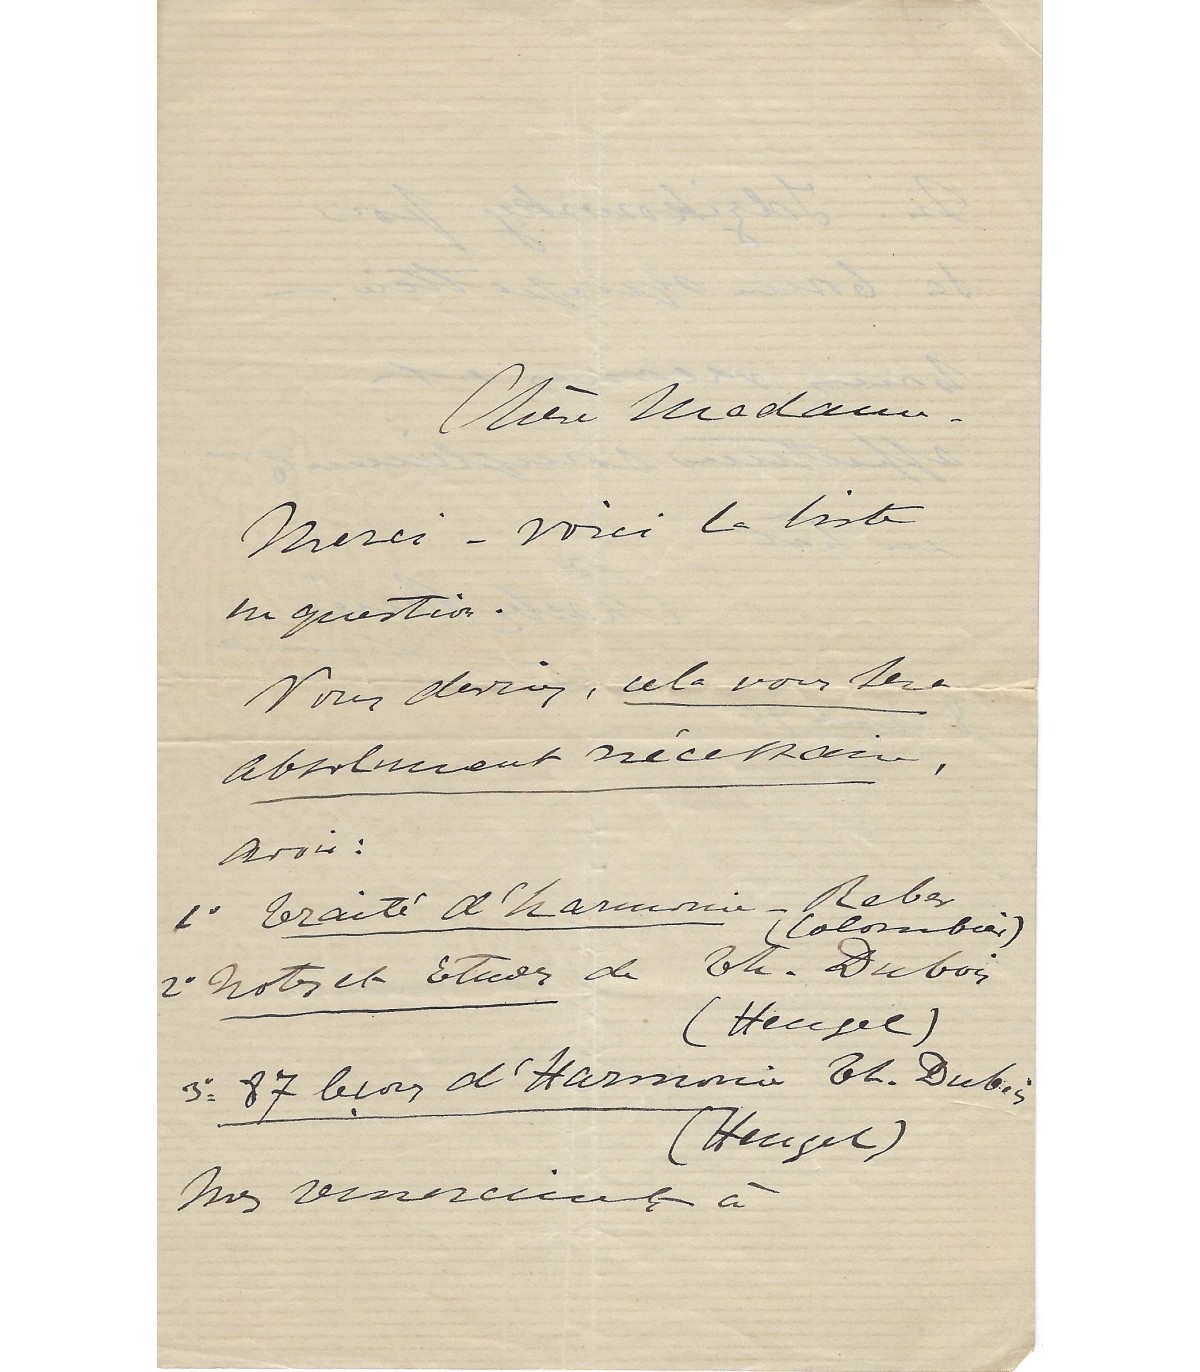 Chère Madame -
Merci - voici la liste
en question.
Vous devriez, cela vous sera
absolument nécessaire,
avoir :
1° Traité d'harmonie - Reber
(Colombier)
2° Notes et Études de Th. Dubois
(Heugel)
3° 87 leçons d'Harmonie Th. Dubois
(Heugel)
Mes remerciments à